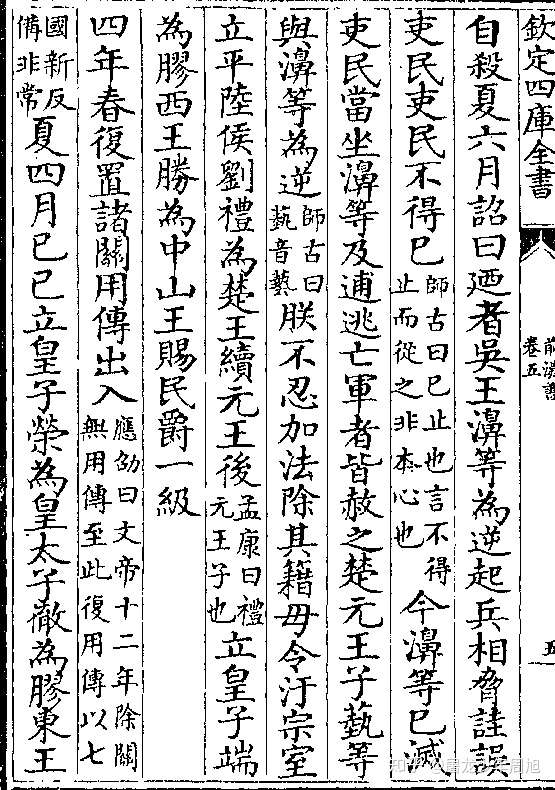 欽定四庫全書
前漢書
卷五
五
自殺夏六月詔曰廼者吳王濞等為逆起兵相脅詿誤
吏民吏民不得已師古曰已止也言不得止而從之非本心也今濞等已滅
吏民當坐濞等及逋逃亡軍者皆赦之楚元王子蓺等
與濞等為逆師古曰蓺音藝朕不忍加法除其籍毋令汙宗室
立平陸侯劉禮為楚王續元王後孟康曰禮元王子也立皇子端
為膠西王勝為中山王賜民爵一級
四年春復置諸關用傳出入應劭曰文帝十二年除關無用傳至此復用傳以七
國新反備非常夏四月己巳立皇子榮為皇太子徹為膠東王
知乎